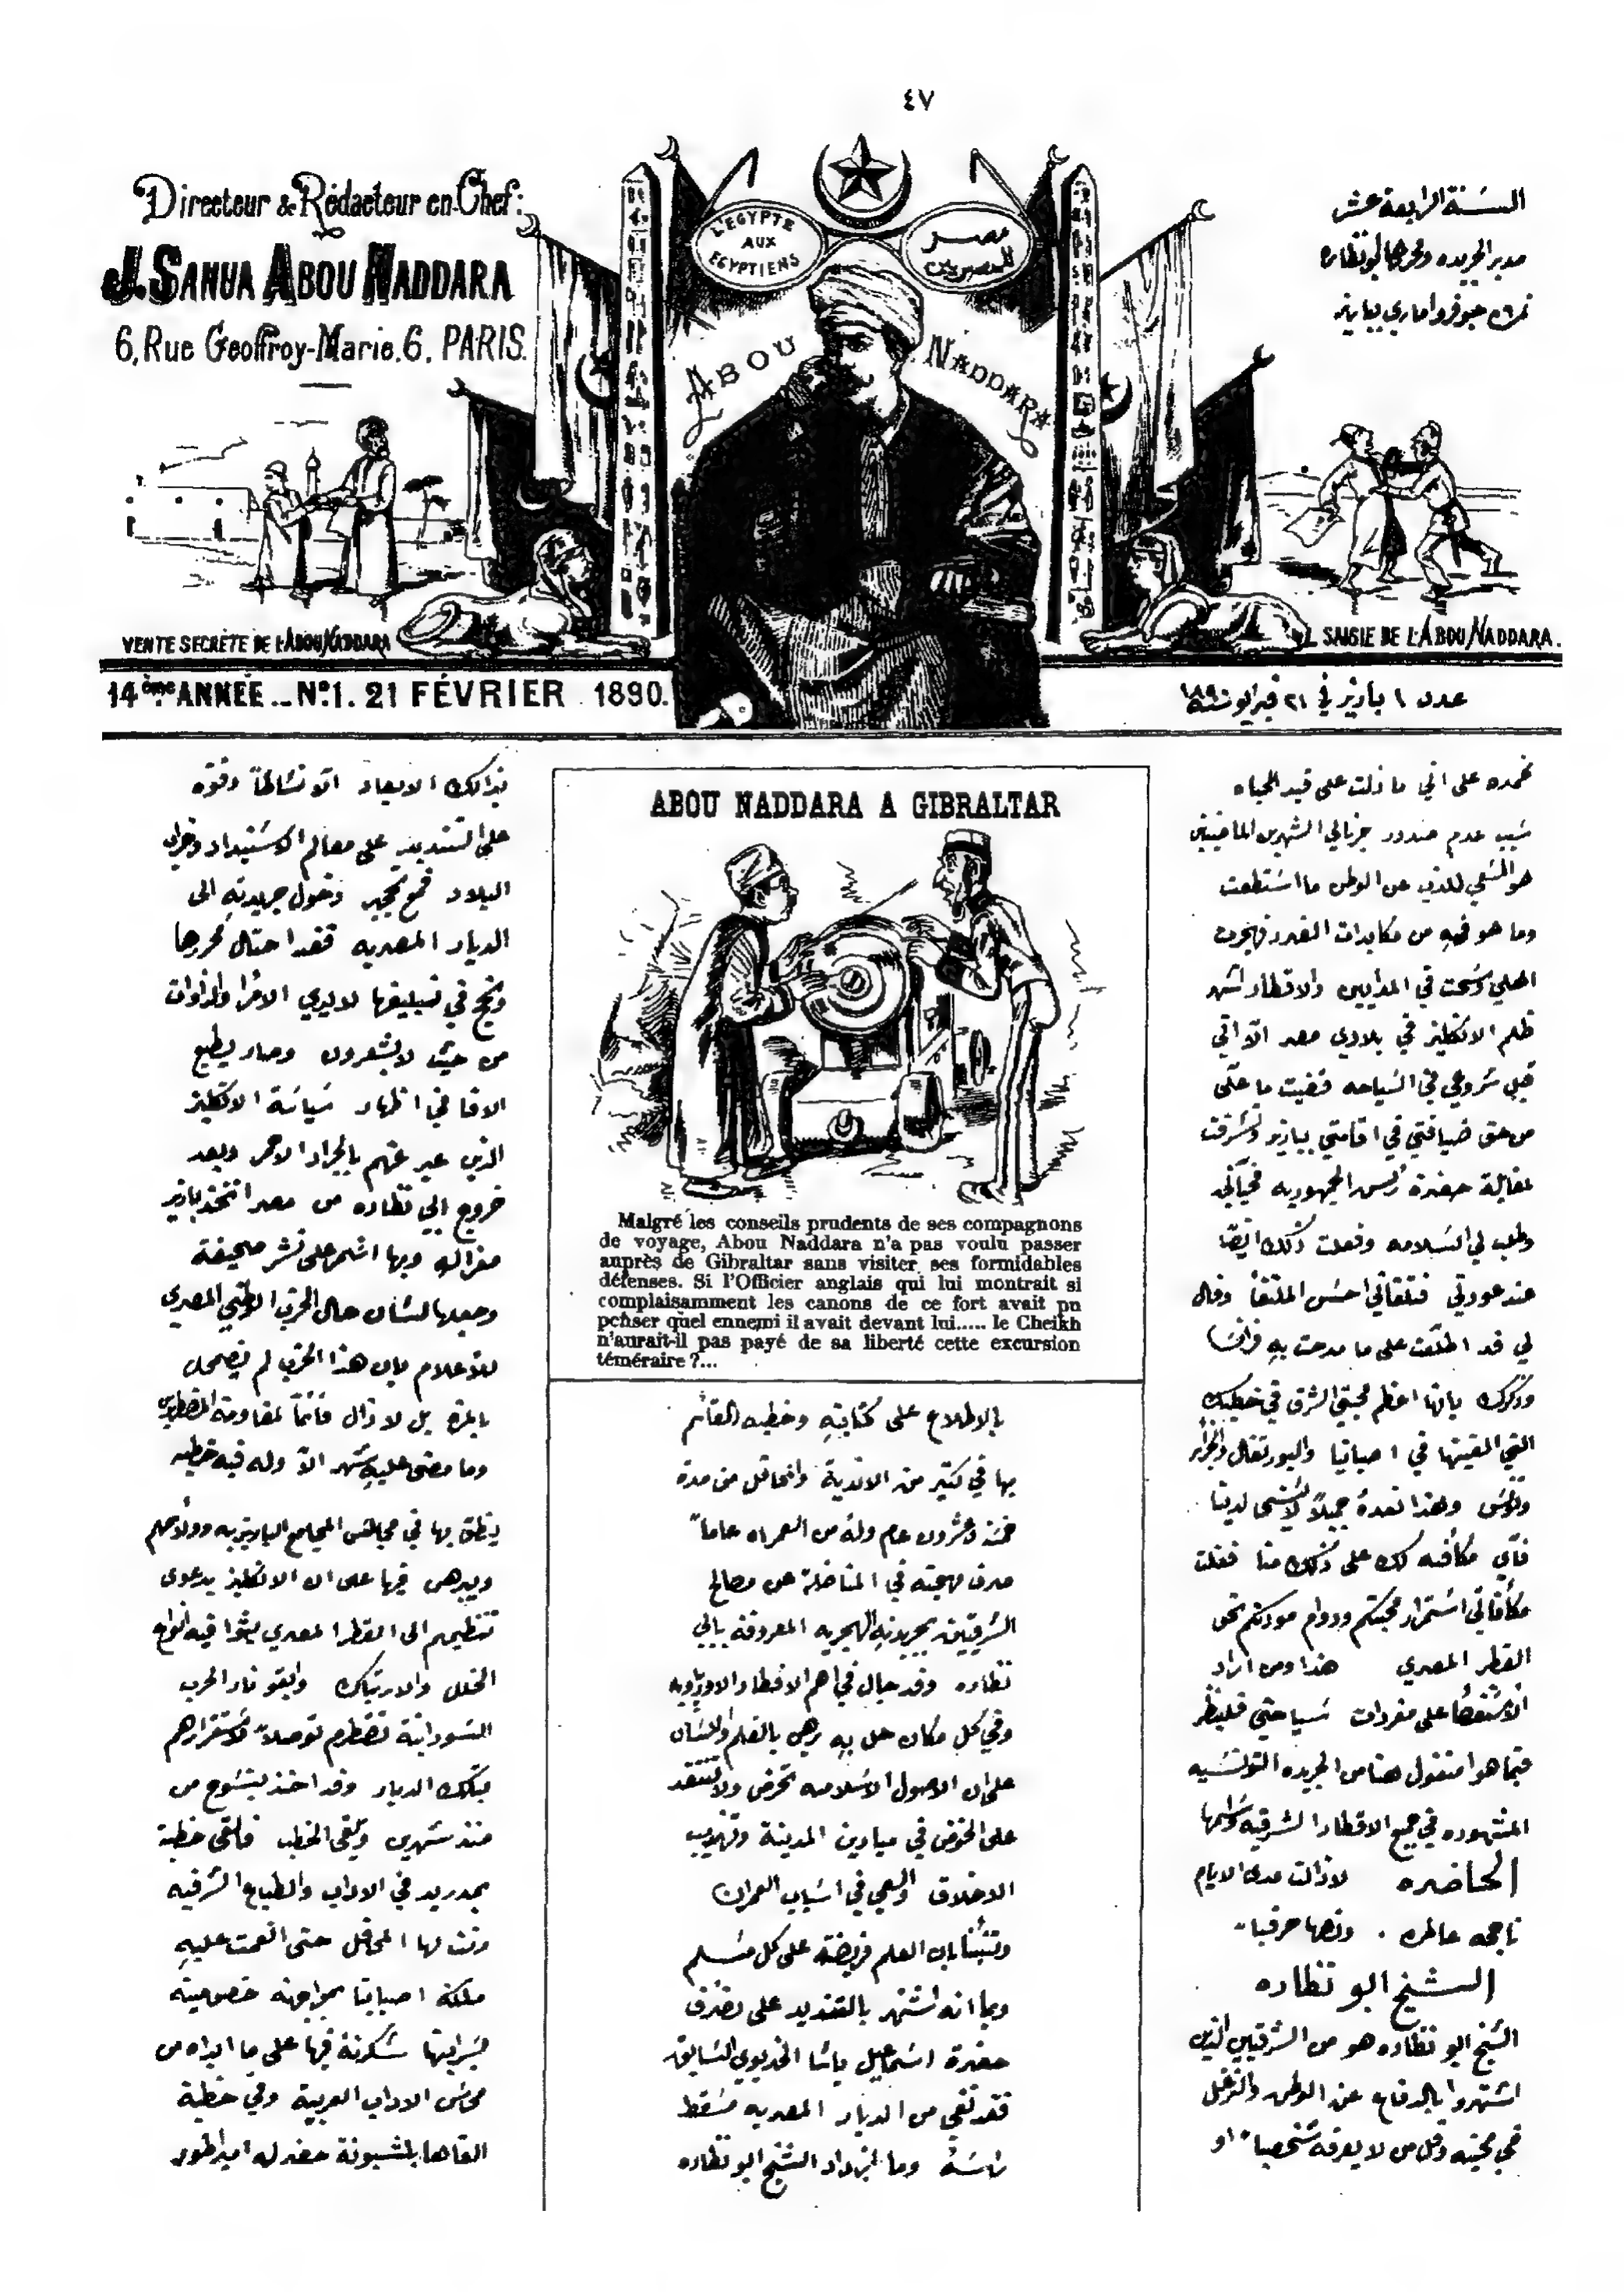 ٤٧
Directeur & Rédacteur en Chef:
J. SANUA ABOU NADDARA
6, Rue Geoffroy-Marie. 6. PARIS.
L'EGYPTE
AUX
EGYPTIENS
مصر
للمصريين
ABOU NADDARA
السنة الرابعة عشر
مدير الجريده ومحررها ابو نظاره
VENTE SECRÈTE DE L'ABOU NADDARA
SAISIE DE L'ABOU NADDARA.
14ème ANNÉE _ No. 1. 21 FÉVRIER 1890.
عدد ١ باريز في ٢١ فبرايو سنة ١٨٩٠
نحمده على اني ما زلت على قيد الحياه
سبب عدم صدور جرنالي الشهرين الماضيين
هو السعي للذب عن الوطن ما استطعت
وما هو فيه من مكابدات الضرر فهجرت
اهلي وسحت في المداين والاقطار لشهر
ظلم الانكليز في بلادي مصر الا اني
قبل شروعي في السياحه قضيت ما علي
من حق ضيافتي في اقامتي بباريز وتشرفت
بمقابلة حضرة رئيس الجمهوريه فحياني
وطلب لي السلامه وفعلت ذلك ايضا
عند عودتي فتلقاني احسن الملتقا وقال
لي قد اطلعت على ما مدحت به فرانسا
وذكرك بانها اعظم محبي الشرق في خطبك
التي القيتها في اصبانيا والبورتغال والجزائر
وتونس وهذا نعده جميلاً لا ينسى لدينا
فأي مكافئه لك على ذلك منا فقلت
مكافاتي استمرار محبتكم ودوام مودتكم نحو
القطر المصري هذا ومن اراد
الاستقصا على مفردات سياحتي فلينظر
فيما هو منقول هنا من الجريده التونسيه
المشهوره في جميع الاقطار الشرقيه واسمها
الحاضره لا زالت مدى الايام
ناجحه عامره . ونصها حرفيا
الشيخ ابو نظاره
الشيخ ابو نظاره هو من الشرقيين الذين
اشتهروا بالدفاع عن الوطن والتوغل
في محبته وقل من لا يعرفه شخصيا او
ABOU NADDARA A GIBRALTAR
Malgré les conseils prudents de ses compagnons
de voyage, Abou Naddara n'a pas voulu passer
auprès de Gibraltar sans visiter ses formidables
défenses. Si l'Officier anglais qui lui montrait si
complaisamment les canons de ce fort avait pu
penser quel ennemi il avait devant lui..... le Cheikh
n'aurait-il pas payé de sa liberté cette excursion
téméraire ?...
بالاطلاع على كتابته وخطبه القائم
بها في كثير من الاندية والمحافل من مدة
خمسة وعشرون عام وله من العمر اه عاماً
صرف مهجته في المناضلة عن مصالح
الشرقيين بجريدته الهجريه المعروفه بابي
نظاره وقد جال في اهم الاقطار الاوروباويه
وفي كل مكان حل به برهن بالقلم واللسان
على ان الاصول الاسلاميه تحرض ولا تنتقد
على الخوض في ميادين المدينة وتهذيب
الاخلاق والسعي في اسباب العمران
وتنبئنا بان العلم فريضة على كل مسلم
وبما انه اشتهر بالتنديد على تصرف
حضرة اسماعيل باشا الخديوي السابق
فقد نفي من الديار المصريه مسقط
راسه وما ازداد الشيخ ابو نظاره
بذالك الابعاد الا نشاطاً وقوه
على التنديد على معالم الاستبداد وخراب
البلاد فمع تحجير دخول جريدته الى
الديار المصريه فقد احتال محررها
ونجح في تبليغها لايدي الامرا والذوات
من حيث لا يشعرون وصار يطبع
الافا في اظهار سياسة الانكليز
الذين عبر عنهم بالجراد الاحمر وبعد
خروج ابي نظاره من مصر اتخذ باريز
مقرا له وبها اشهر على نشر صحيفة
وجعلها لسان حال الحزب الوطني المصري
للاعلام بان هذا الحزب لم يضمحل
بالمرة بل لا زال قائماً لمقاومة المضطهدين
وما مضى عليه شهر الا وله فيه خطبه
ينطق بها في مجالس المجامع الباريزيه وولائمهم
ويبرهن فيها على ان الانكليز بدعوى
تنظيمهم الى القطر المصري بثوا فيه انواع
الخلل والارتباك وابقو نار الحرب
السودانية تضطرم توصلاً لاستقرارهم
بتلك الديار وقد اخذ يتسوح من
منذ شهرين ويلقي الخطب فالقى خطبة
بمدريد في الاداب والطباع الشرقيه
ملكة اصبانيا بمواجهة خصوصية
بسرايتها شكرته فيها على ما ابداه من
محاسن الاداب العربية وفي خطبة
القاها بلشبونة حضر له امبراطور